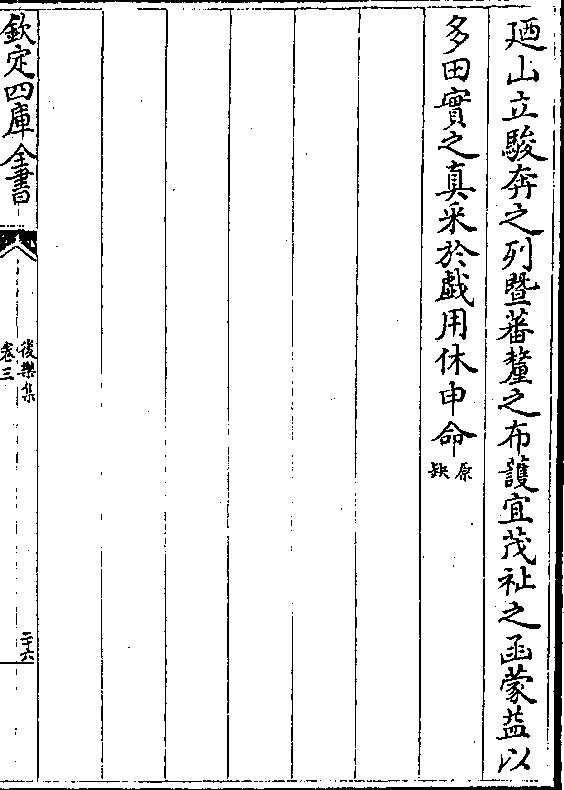 廼山立駿奔之列暨蕃釐之布護宜茂祉之函蒙益以
多田實之真采於戲用休申命原缺
欽定四庫全書
後樂集
卷三
二十六